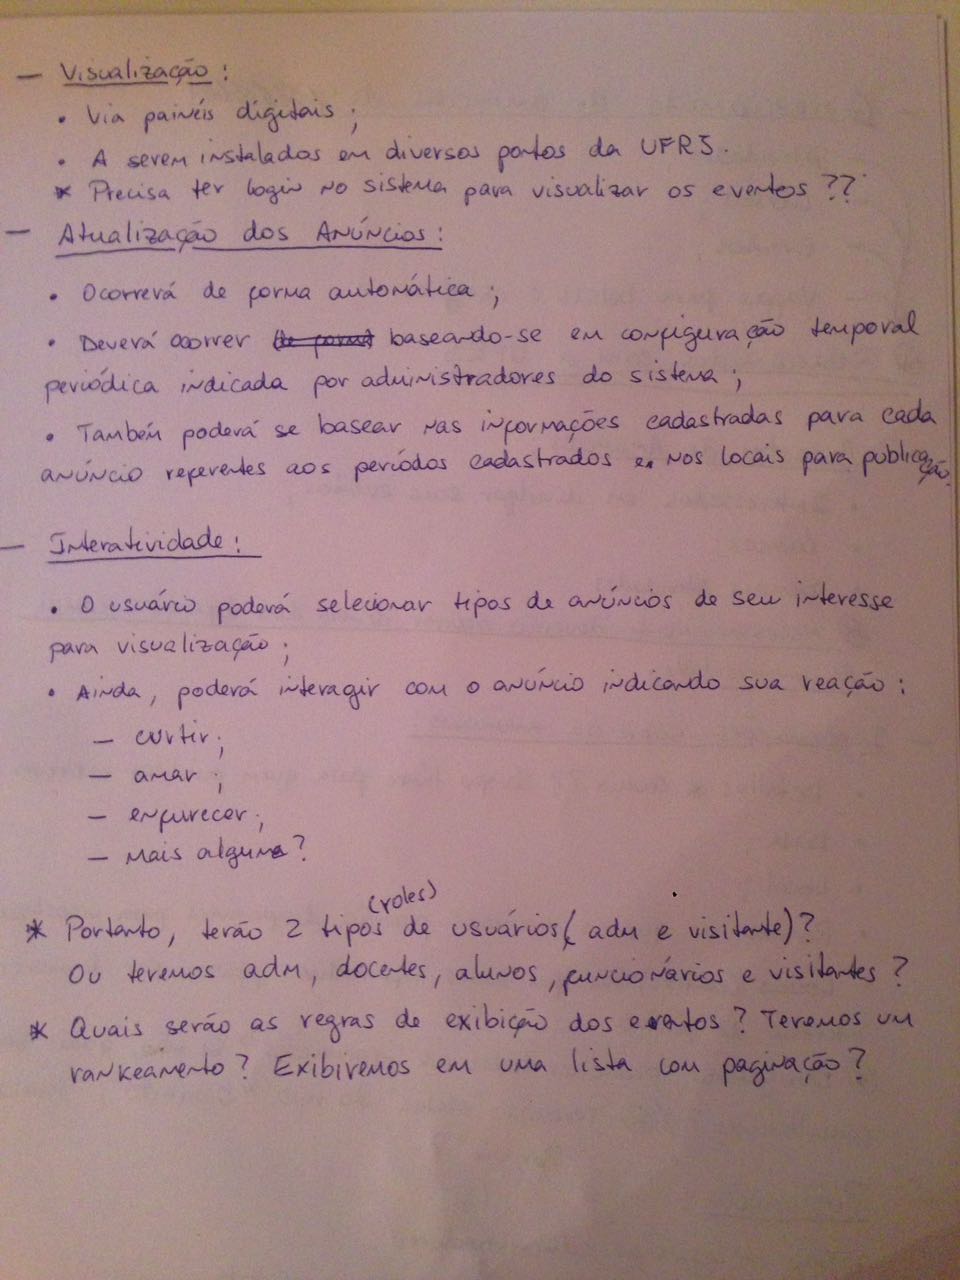 — Visualização:
• Via painéis digitais;
• A serem instalados em diversos pontos da UFRJ.
* Precisa ter login no sistema para visualizar os eventos ??
— Atualização dos Anúncios:
• Ocorrerá de forma automática;
• Deverá ocorrer (de forma) baseando-se em configuração temporal
periódica indicada por administradores do sistema;
• Também poderá se basear nas informações cadastradas para cada
anúncio referentes aos períodos cadastrados e nos locais para publicação.
— Interatividade:
• O usuário poderá selecionar tipos de anúncios de seu interesse
para visualização;
• Ainda, poderá interagir com o anúncio indicando sua reação:
— curtir;
— amar;
— enfurecer;
— Mais alguma?
(roles)
* Portanto, terão 2 tipos de usuários (adm e visitante)?
Ou teremos adm, docentes, alunos, funcionários e visitantes?
* Quais serão as regras de exibição dos eventos? Teremos um
rankeamento? Exibiremos em uma lista com paginação?